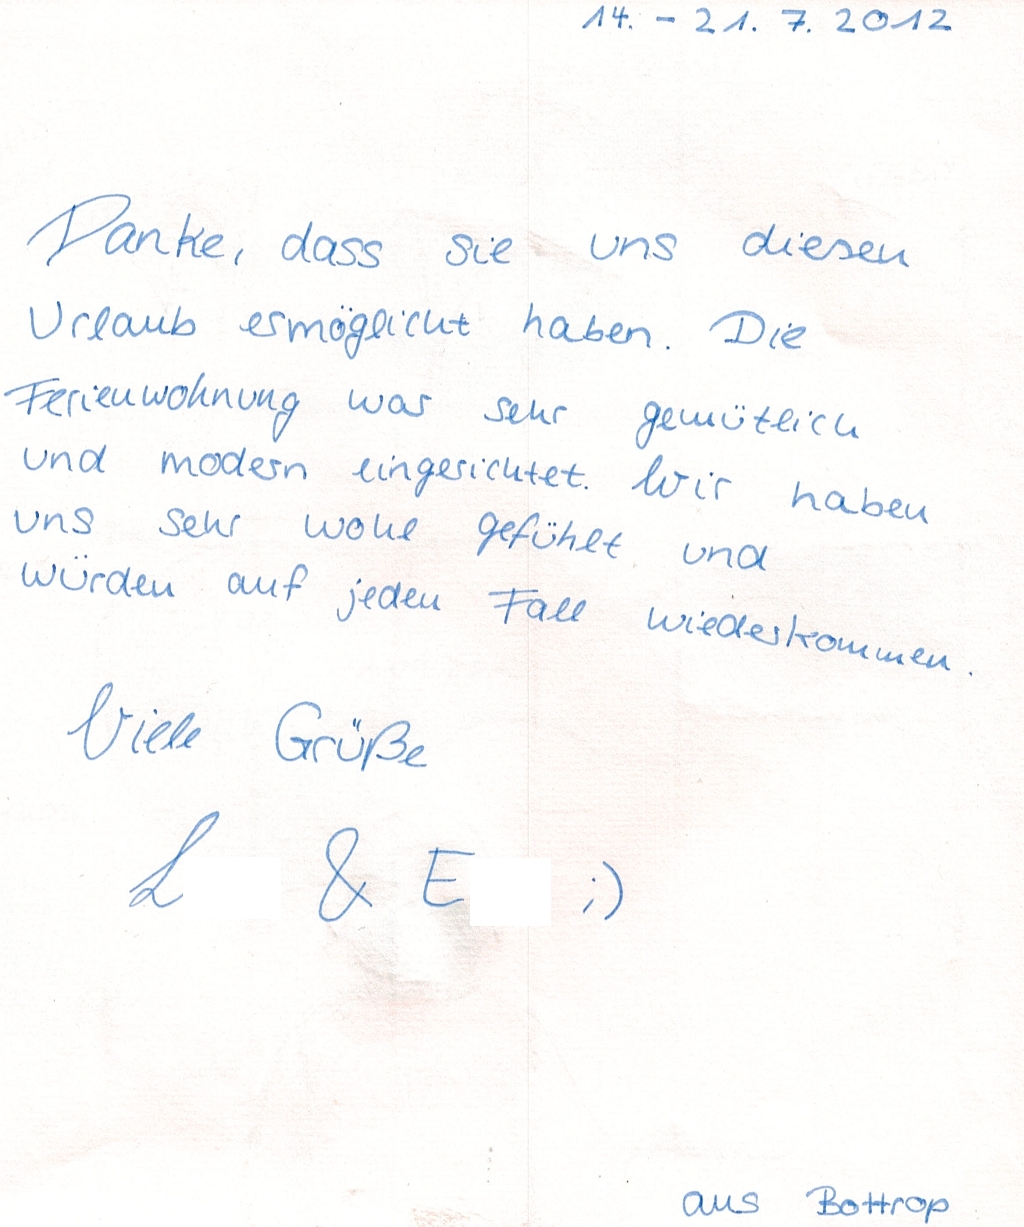 14. - 21. 7. 2012
Danke, dass sie uns diesen
Urlaub ermöglicht haben. Die
Ferienwohnung war sehr gemütlich
und modern eingerichtet. Wir haben
uns sehr wohl gefühlt und
würden auf jeden Fall wiederkommen.
Viele Grüße
L & E ;)
aus Bottrop